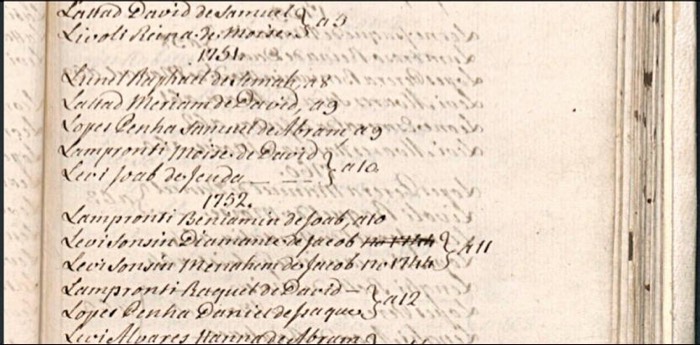 Lattad David de Samuel } a 5
Livoli Reina de Moise
1751.
Lunel Raphael de Semah, a 8
Lattad Meriam de David, a 9
Lopes Penha Samuel de Abram a 9
Lampronti Moise de David } a 10
Levi Joab de Jeuda
1752.
Lampronti Beniamin de Joab, a 10
Levi Sonsin Diamante de Jacob no 1744 } a 11
Levi Sonsin Menahem de Jacob no 1744
Lampronti Raquel de David — } a 12
Lopes Penha Daniel de Jsaque
Levi Alvares Hanna de Abram